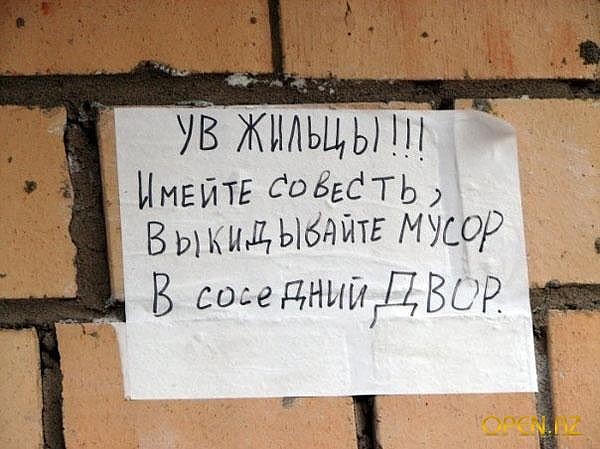 УВ ЖИЛЬЦЫ!!!
ИМЕЙТЕ СОВЕСТЬ,
ВЫКИДЫВАЙТЕ МУСОР
В СОСЕДНИЙ ДВОР.
OPEN.AZ